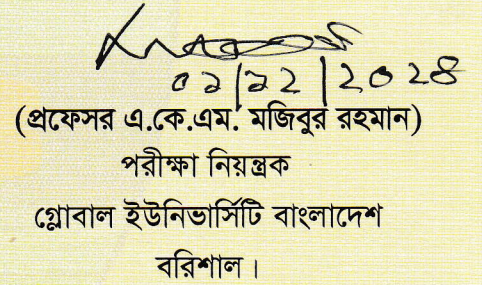 ০১|১২|২০২৪
(প্রফেসর এ.কে.এম. মজিবুর রহমান)
পরীক্ষা নিয়ন্ত্রক
গ্লোবাল ইউনিভার্সিটি বাংলাদেশ
বরিশাল।